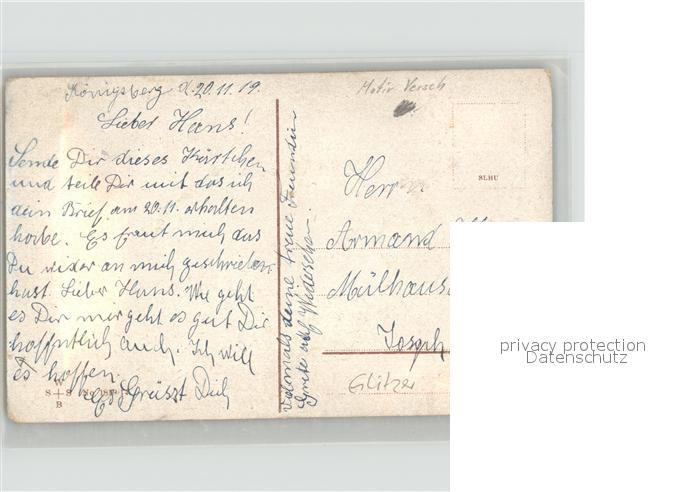 Königsberg d. 20.11.19.
Lieber Hans!
Sende Dir dieses Kärtchen
und teile Dir mit das ich
dein Brief am 20.11. erhalten
habe. Es freut mich das
Du wider an mich geschrieben
hast. Lieber Hans. Wie geht
es Dir mir geht es gut Dir
hoffentlich auch. Ich will
es hoffen.
Es Grüsst Dich
deine treue Freundin
Grete auf Widersehen.
Motiv Versch
SLHU
Herrn
Armand
Mülhause
Joseph
Glitzer
W
S S No
B
privacy protection
Datenschutz